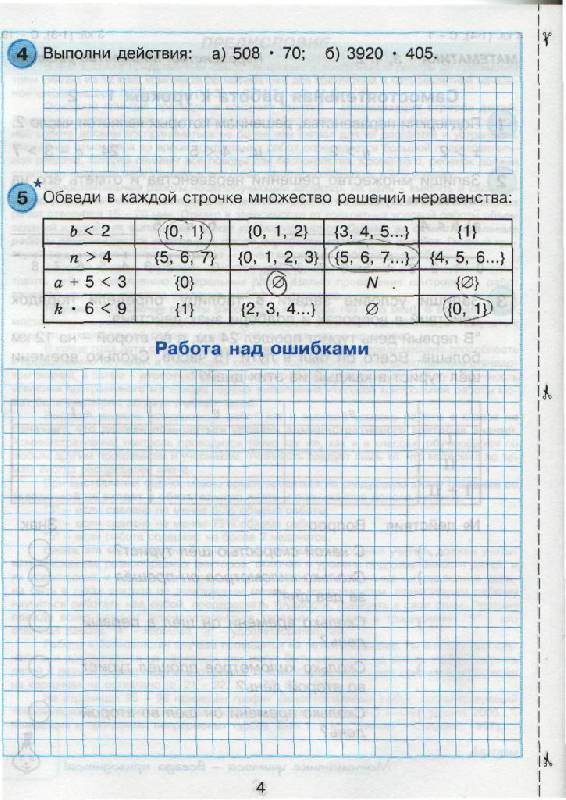 4 Выполни действия: а) 508 · 70; б) 3920 · 405.
5* Обведи в каждой строчке множество решений неравенства:
b < 2 {0, 1} {0, 1, 2} {3, 4, 5...} {1}
n > 4 {5, 6, 7} {0, 1, 2, 3} {5, 6, 7...} {4, 5, 6...}
a + 5 < 3 {0} ∅ N {∅}
k · 6 < 9 {1} {2, 3, 4...} ∅ {0, 1}
Работа над ошибками
4